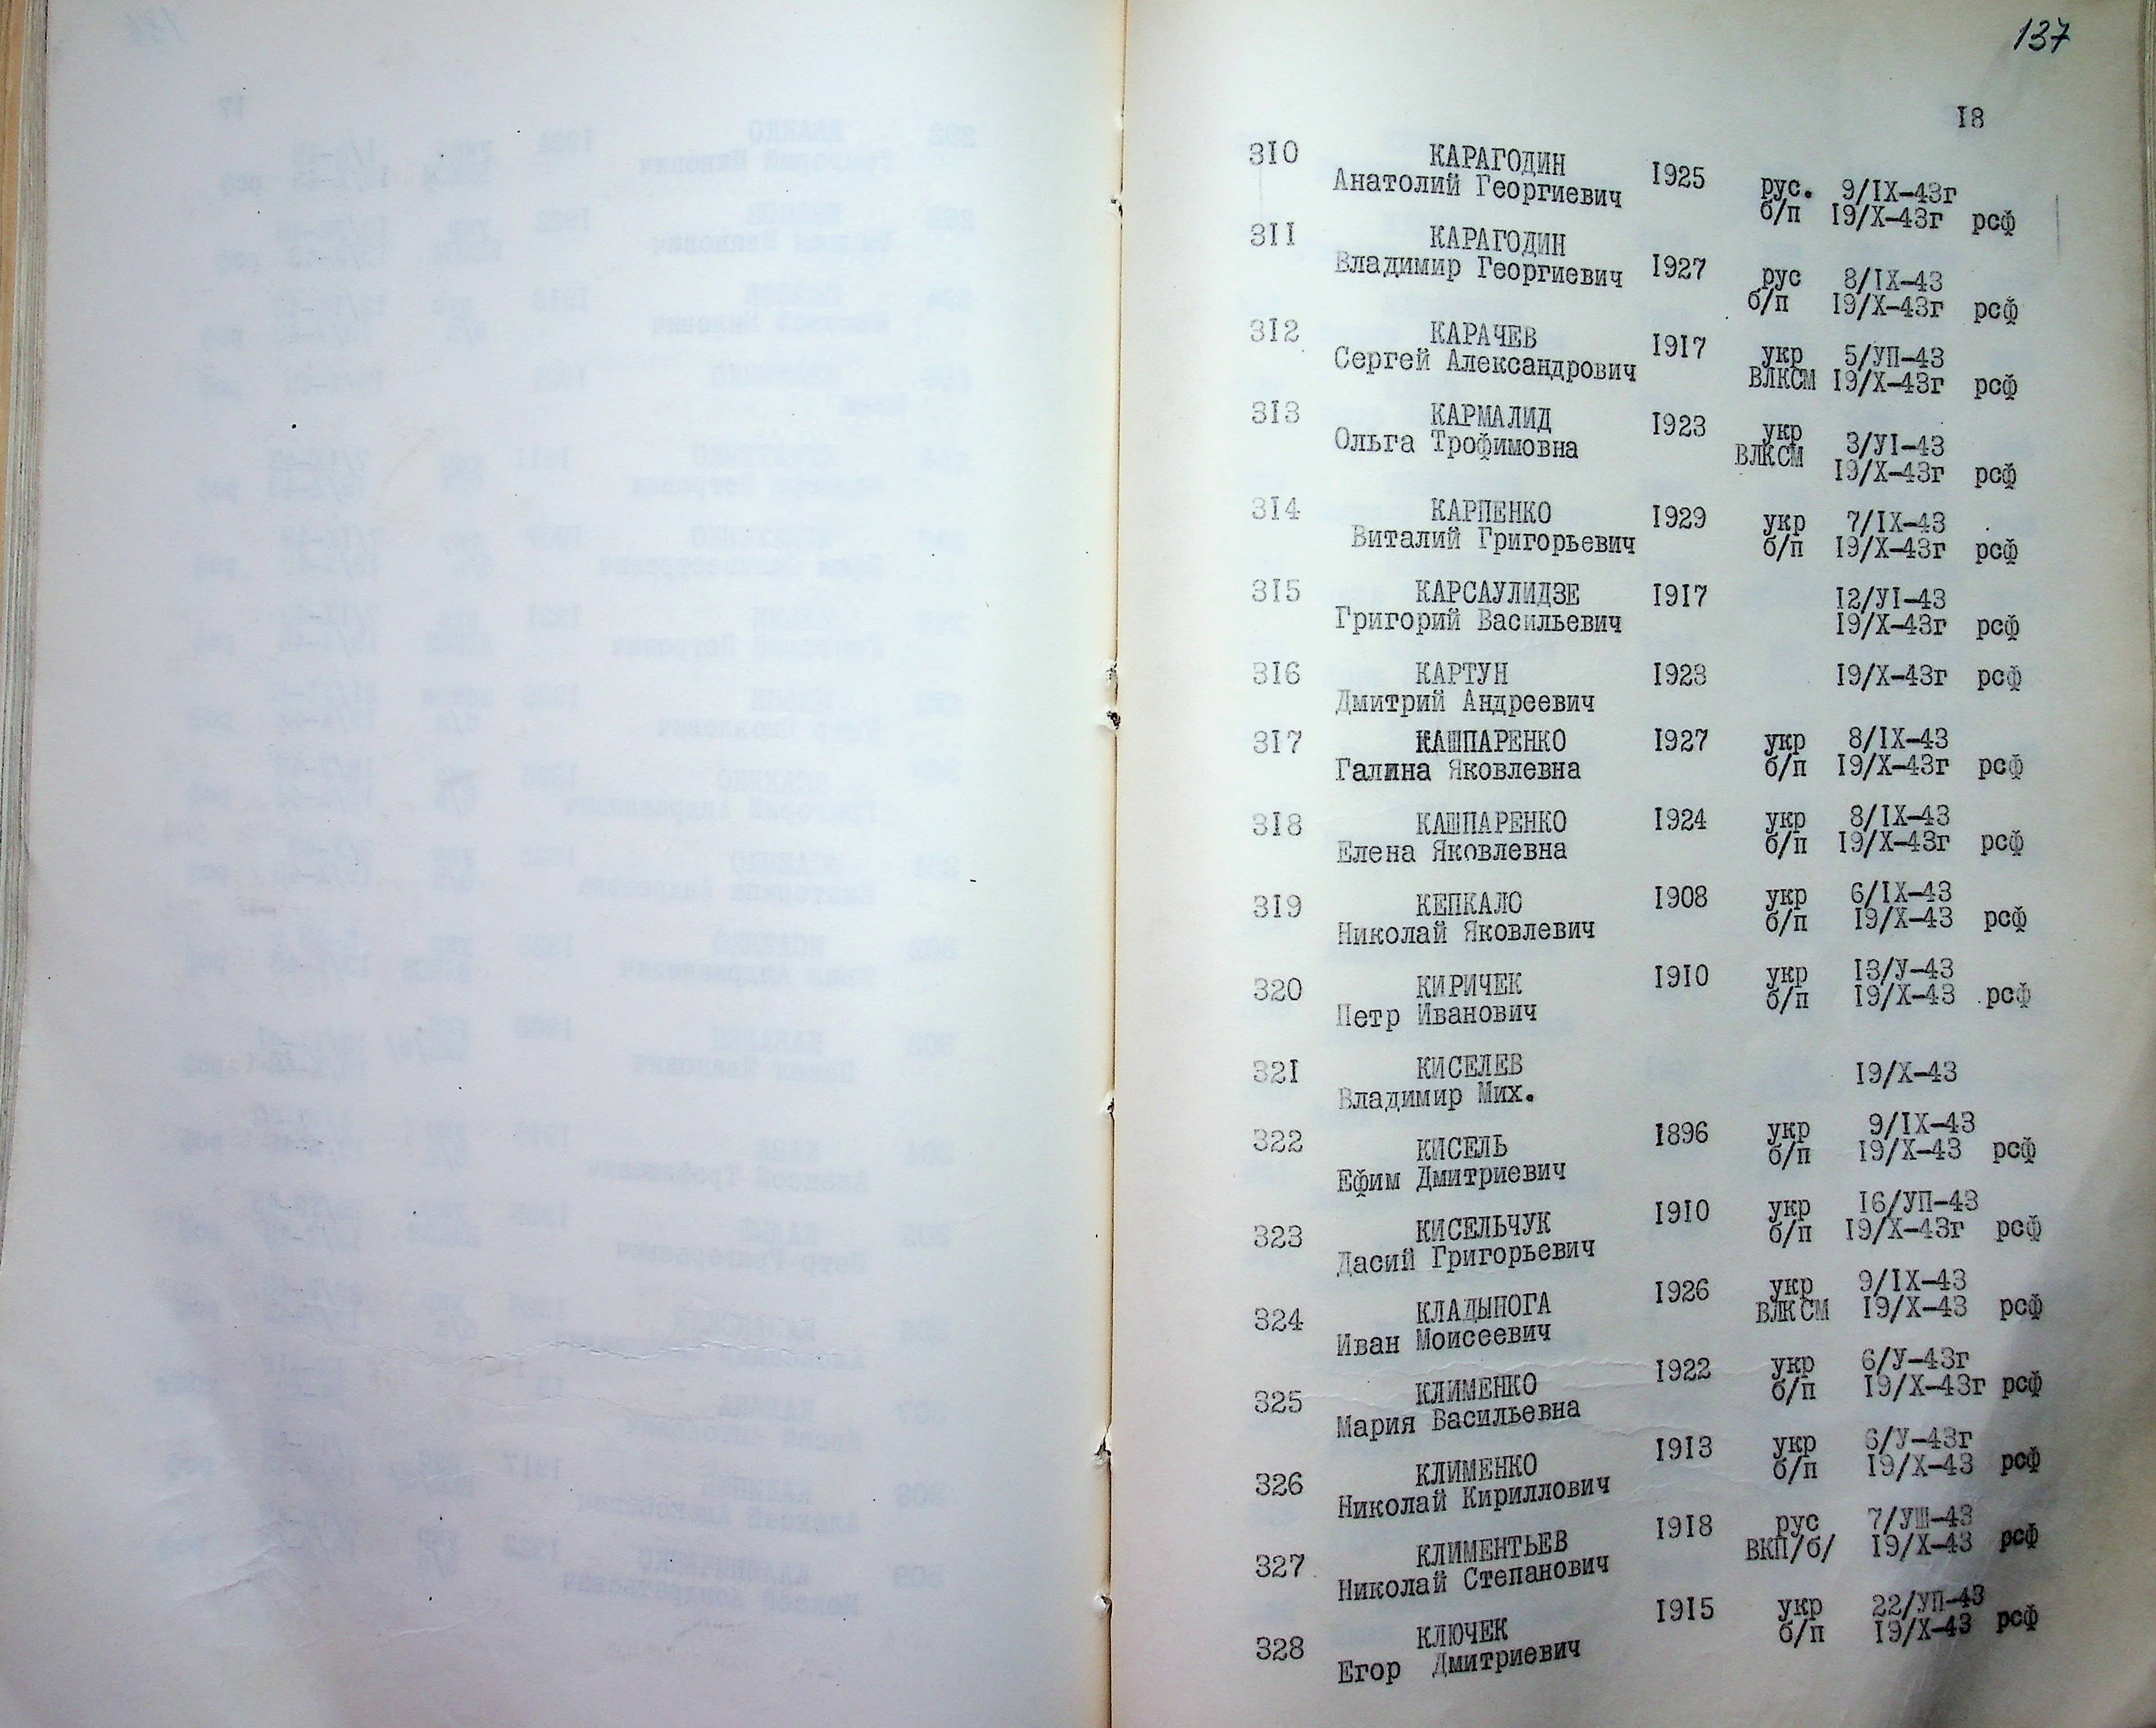 137
18
310 КАРАГОДИН 1925 рус. 9/IX-43г
Анатолий Георгиевич б/п 19/X-43г рсф
311 КАРАГОДИН 1927 рус 8/IX-43
Владимир Георгиевич б/п 19/X-43г рсф
312 КАРАЧЕВ 1917 укр 5/УП-43
Сергей Александрович ВЛКСМ 19/X-43г рсф
313 КАРМАЛИД 1923 укр 3/УI-43
Ольга Трофимовна ВЛКСМ 19/X-43г рсф
314 КАРПЕНКО 1929 укр 7/IX-43
Виталий Григорьевич б/п 19/X-43г рсф
315 КАРСАУЛИДЗЕ 1917 12/УI-43
Григорий Васильевич 19/X-43г рсф
316 КАРТУН 1923 19/X-43г рсф
Дмитрий Андреевич
317 КАШПАРЕНКО 1927 укр 8/IX-43
Галина Яковлевна б/п 19/X-43г рсф
318 КАШПАРЕНКО 1924 укр 8/IX-43
Елена Яковлевна б/п 19/X-43г рсф
319 КЕПКАЛО 1908 укр 6/IX-43
Николай Яковлевич б/п 19/X-43 рсф
320 КИРИЧЕК 1910 укр 13/У-43
Петр Иванович б/п 19/X-43 рсф
321 КИСЕЛЕВ 19/X-43
Владимир Мих.
322 КИСЕЛЬ 1896 укр 9/IX-43
Ефим Дмитриевич б/п 19/X-43 рсф
323 КИСЕЛЬЧУК 1910 укр 16/УП-43
Дасий Григорьевич б/п 19/X-43г рсф
324 КЛАДЫНОГА 1926 укр 9/IX-43
Иван Моисеевич ВЛКСМ 19/X-43 рсф
325 КЛИМЕНКО 1922 укр 6/У-43г
Мария Васильевна б/п 19/X-43г рсф
326 КЛИМЕНКО 1913 укр 6/У-43г
Николай Кириллович б/п 19/X-43 рсф
327 КЛИМЕНТЬЕВ 1918 рус 7/УШ-43
Николай Степанович ВКП/б/ 19/X-43 рсф
328 КЛЮЧЕК 1915 укр 22/УП-43
Егор Дмитриевич б/п 19/X-43 рсф